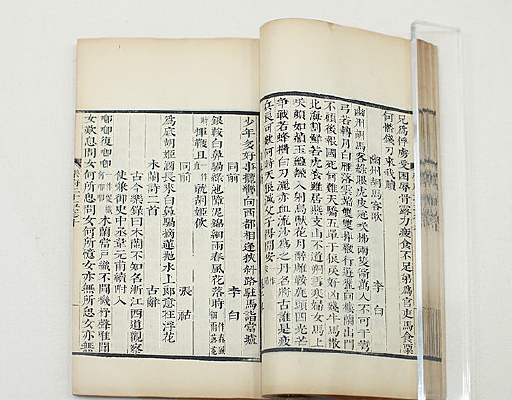 兄為俘虜受困辱骨露力疲食不足弟為官吏馬食粟
何惜錢刀來我贖
幽州胡馬客歌 李白
幽州胡馬客綠眼虎皮冠笑拂兩隻箭萬人不可干彎
弓若轉月白雁落雲端雙雙掉鞭行遊獵向樓蘭出門
不顧後報國死何難天驕五單于狼戾好凶殘牛馬散
北海割鮮若虎餐雖居燕支山不道朔雪寒婦女馬上
笑顏如赬玉盤射鳥獸花月醉雕鞍旄頭四光芒
爭戰若蜂攢白刃灑赤血流沙為之丹名將古誰是疲
兵良可歎何時天狼滅父子得閒安
少年多好事攬轡向西都相逢狹斜路駐馬詣當壚
同前 李白
銀鞍白鼻騧綠地障泥錦細雨春風花落時
揮鞭且就胡姬飲
同前 張祜
為底胡姬酒長來白鼻騧摘蓮拋水上郎意在浮花
木蘭詩二首 古辭
古今樂錄曰木蘭不知名浙江西道觀察
使兼御史中丞韋元甫續附入
唧唧復唧唧 木蘭當戶織不聞機杼聲唯聞
女歎息問女何所思問女何所憶女亦無所思女亦無